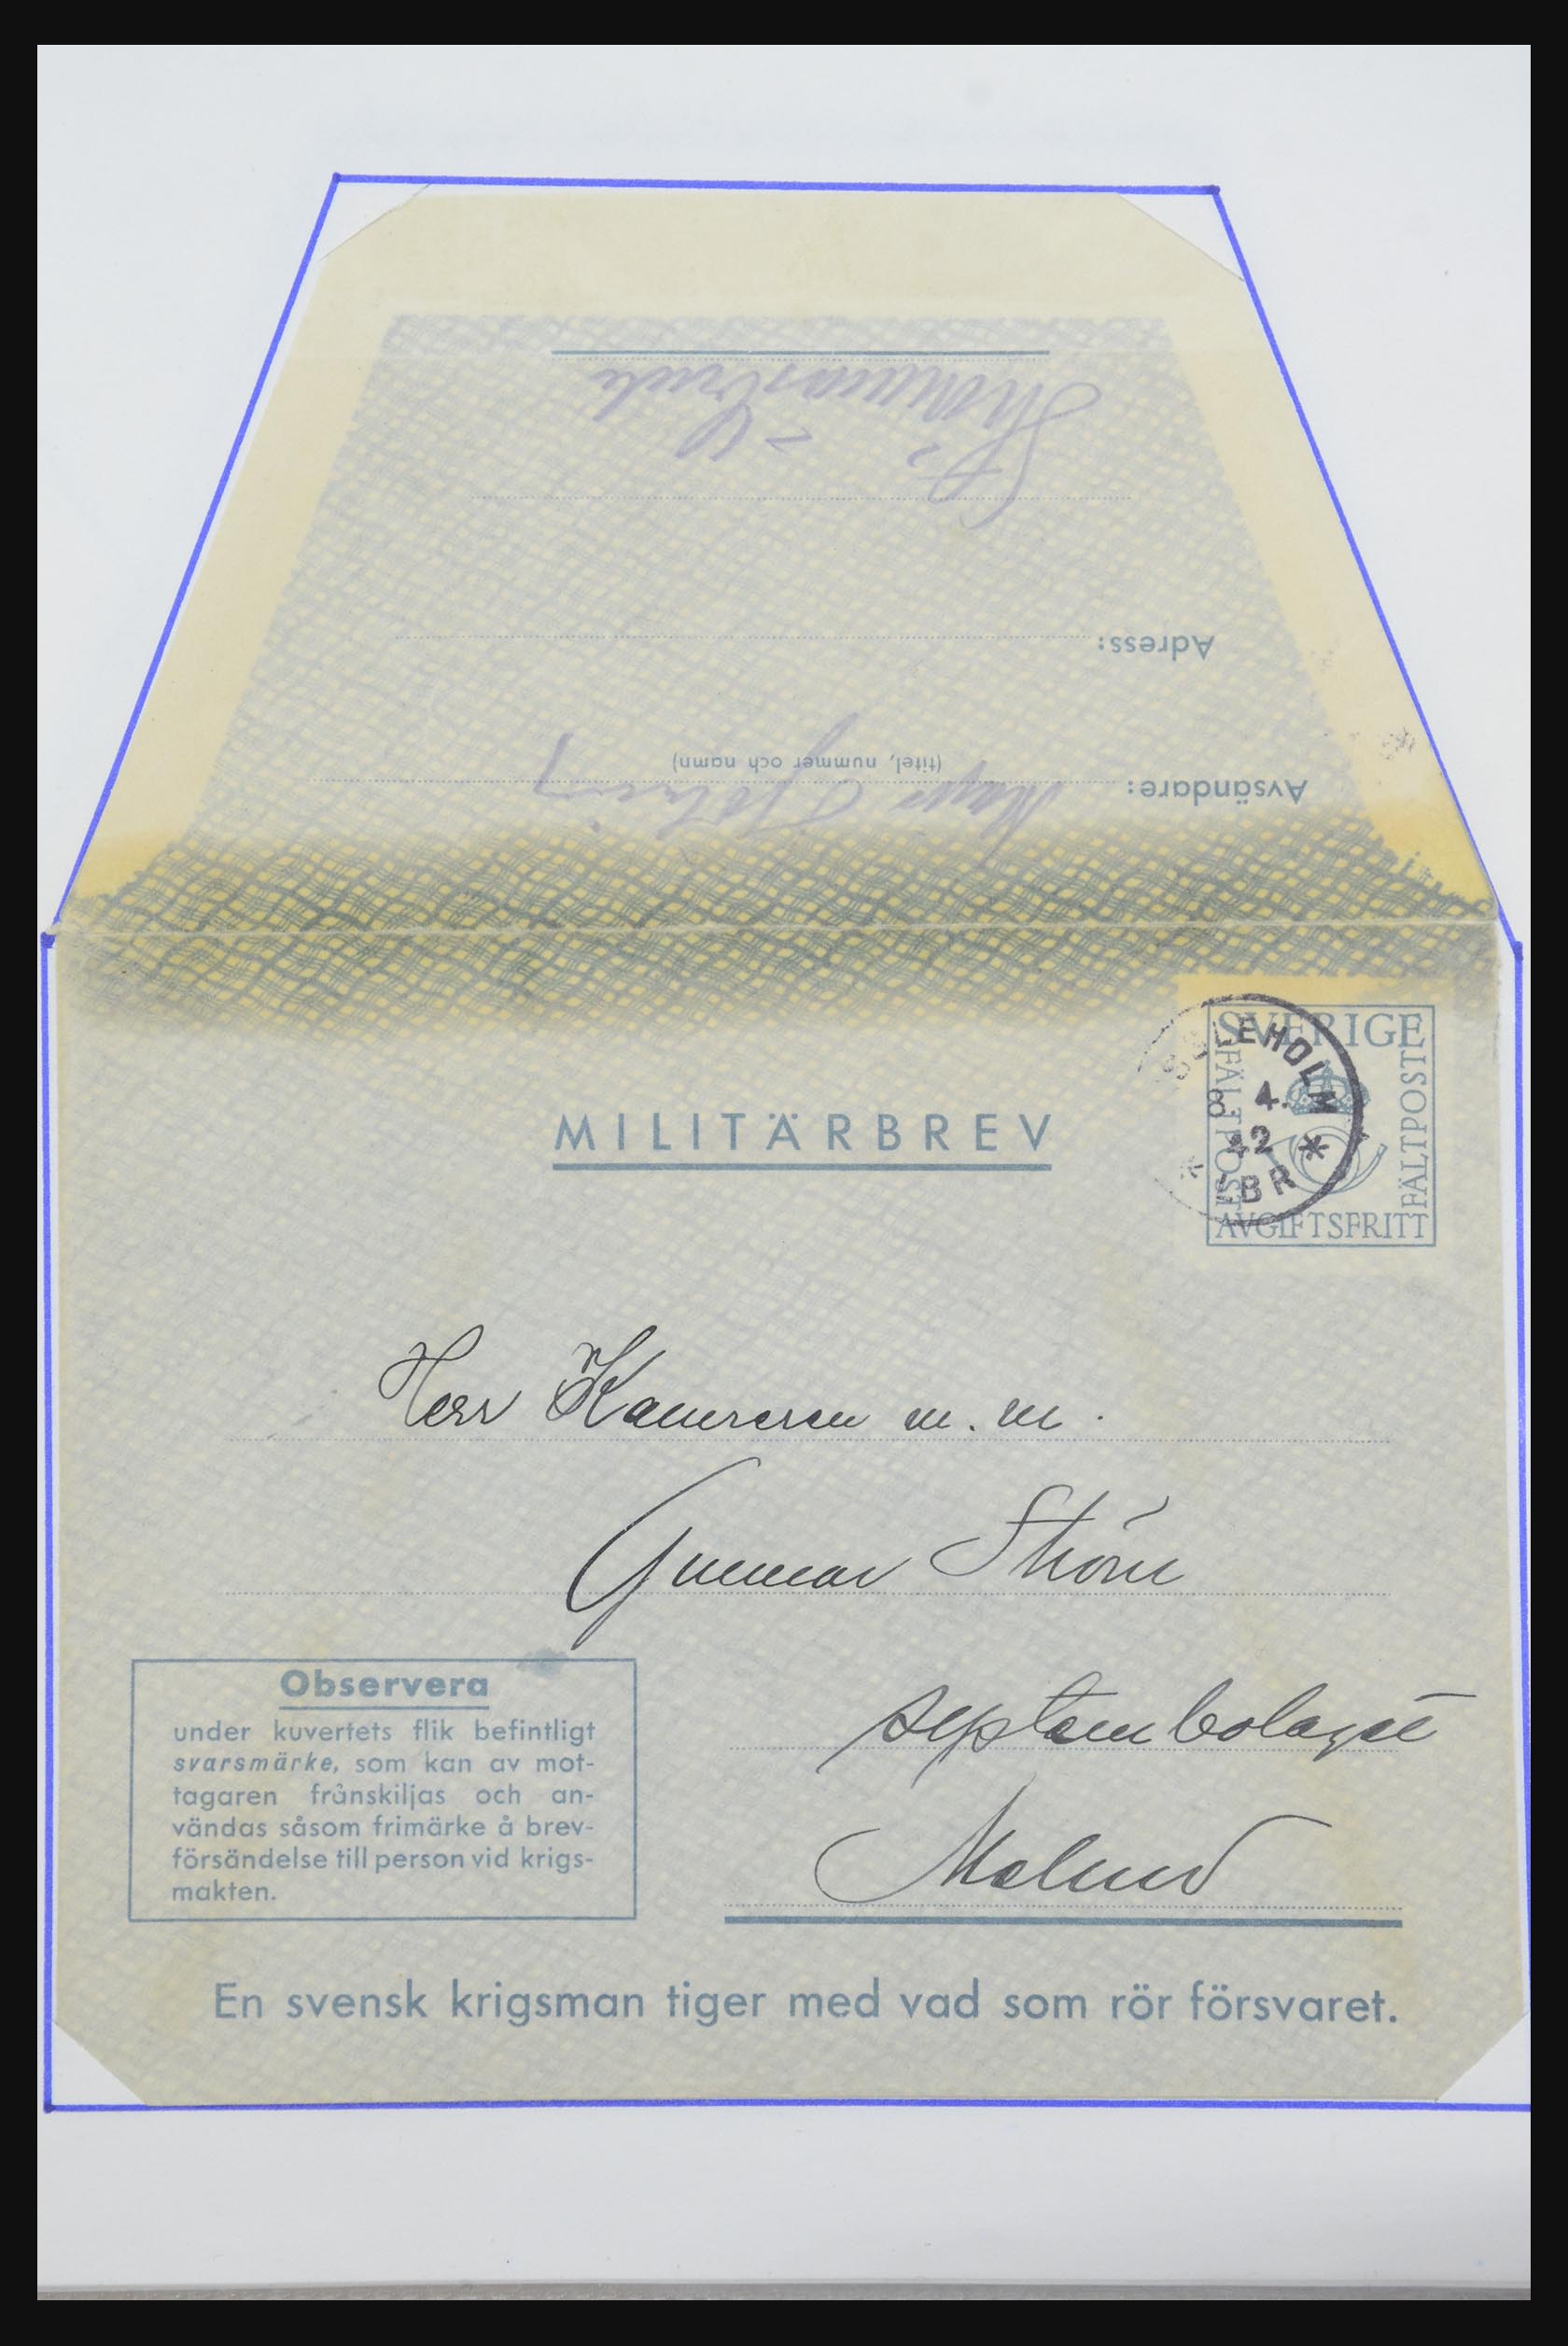 Avsändare:
(titel, nummer och namn)
Adress:
SVERIGE
FÄLTPOST
FÄLTPOST
AVGIFTSFRITT
LEHOLM
4.
8
42
*
LBR
MILITÄRBREV
Herr Kamreren m. m.
Gunnar Ström
Observera
under kuvertets flik befintligt
svarsmärke, som kan av mot-
tagaren frånskiljas och an-
vändas såsom frimärke å brev-
försändelse till person vid krigs-
makten.
Malund
En svensk krigsman tiger med vad som rör försvaret.